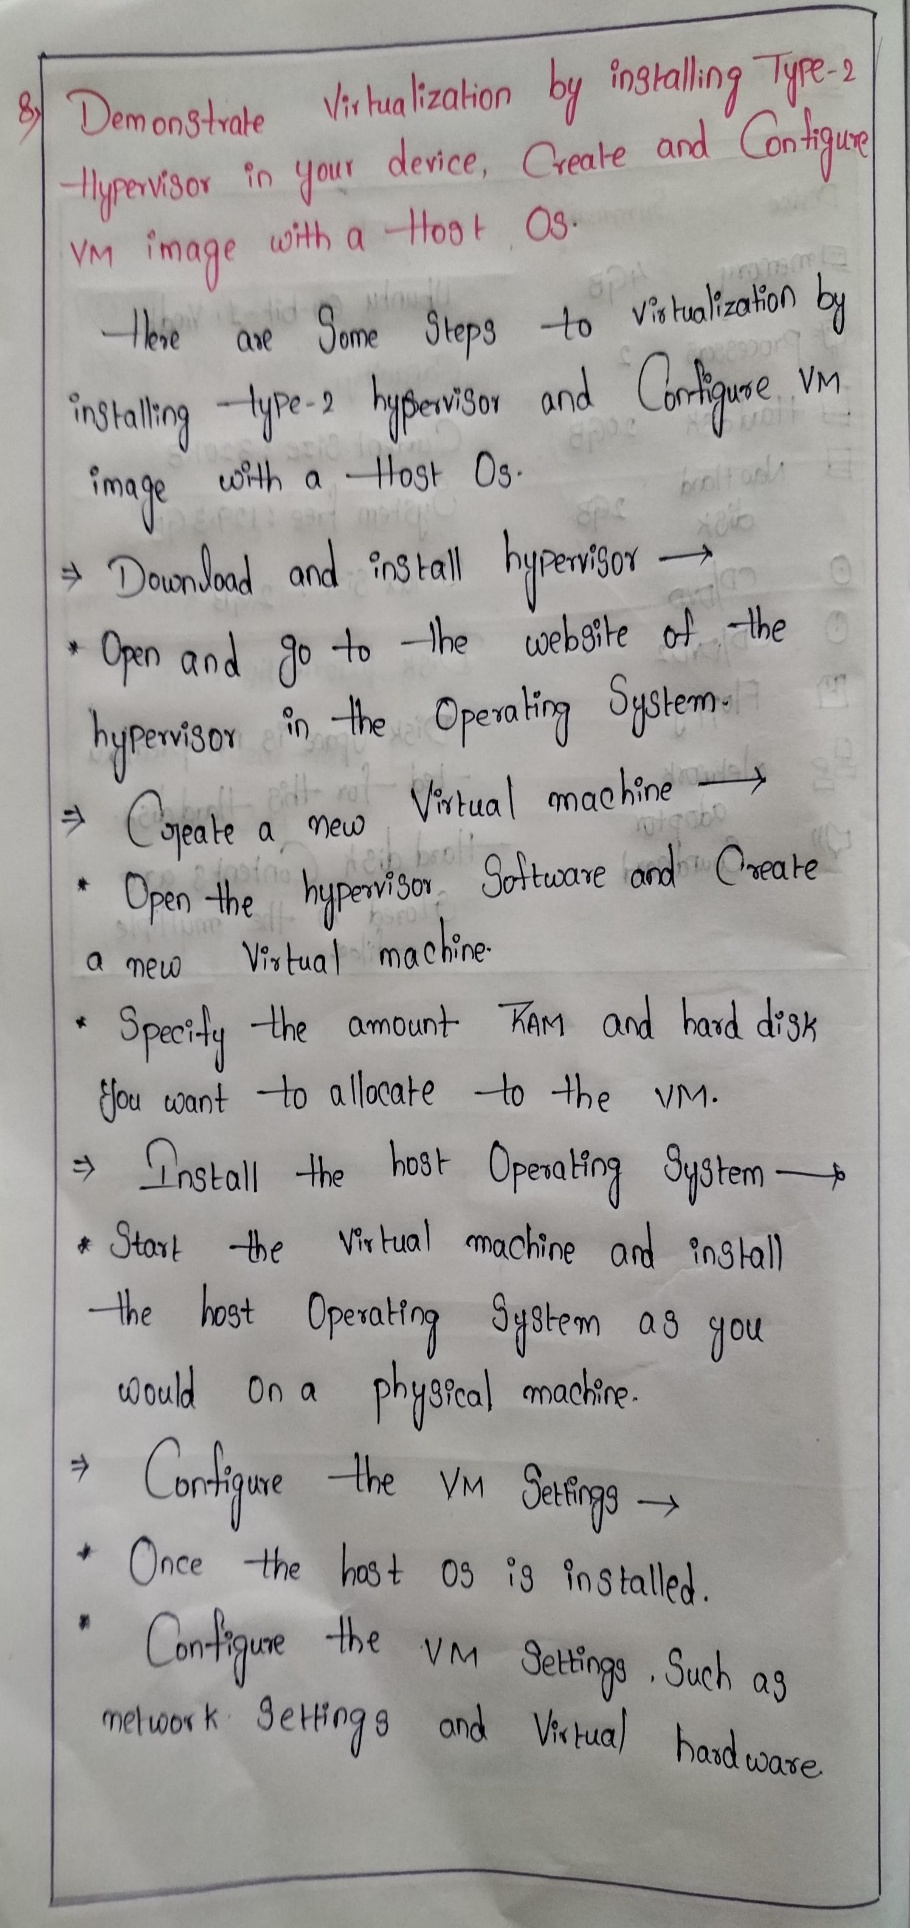 8) Demonstrate Virtualization by installing Type-2
Hypervisor in your device, Create and Configure
VM image with a Host OS.
Here are Some Steps to Virtualization by
installing type-2 hypervisor and Configure VM
image with a Host Os.
⇒ Download and install hypervisor →
* Open and go to the website of the
hypervisor in the Operating System.
⇒ Create a new Virtual machine →
* Open the hypervisor Software and Create
a new Virtual machine.
* Specify the amount RAM and hard disk
you want to allocate to the VM.
⇒ Install the host Operating System →
* Start the Virtual machine and install
the host Operating System as you
would on a physical machine.
⇒ Configure the VM Settings →
* Once the host OS is installed.
* Configure the VM Settings. Such as
network Settings and Virtual hardware.